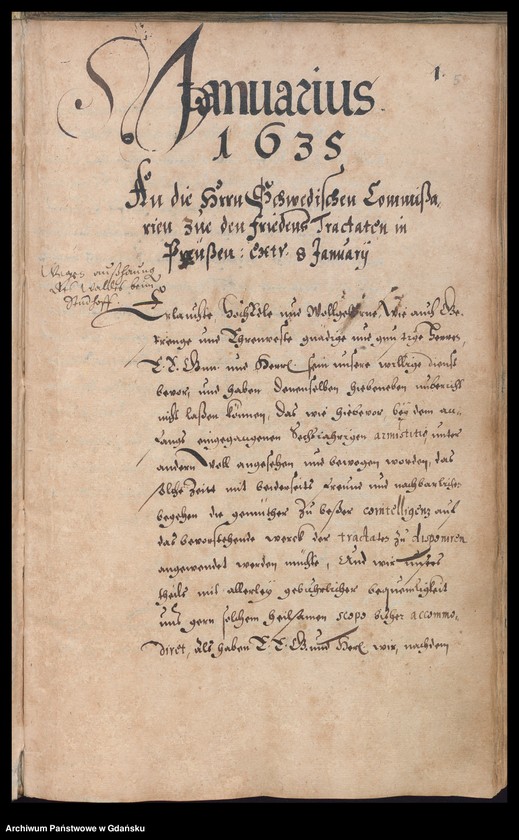 1.
Januarius.
1635
An die Herrn Schwedischen Commißa,
rien zue den Friedens Tractaten in
Preüßen: extr. 8 January
Wegen außhauung
des Waldes beim
Studhoff.
Erlauchte HochEdle und Wollgeborne, Wie auch Ge,
strenge und Ehrenveste gnädige und gunstige Herren,
E. E. Gnn. und Herrl. sein unsere willige dienst
bevor, und haben denenselben hieneben unberichtet
nicht laßen können, das wie hiebevor bey dem an,
fangs eingegangenen Sechsjährigen armistitio unter
andern Woll angesehen und bewogen worden, das
solche Zeitt mit beiderseits freund und nachbarlichem
begehen die gemüther zu beßer cointelligenz auf
das bevorstehende werck der tractaten zu disponiren
angewendet werden müchte, Und wir unsers
theils mit allerley gebührlicher bequemligkeit
uns gern solchem heilsamen scopo bißher accommo,
diret, Als haben E. E. G. und Herl. wir, nachdem
Archiwum Państwowe w Gdańsku